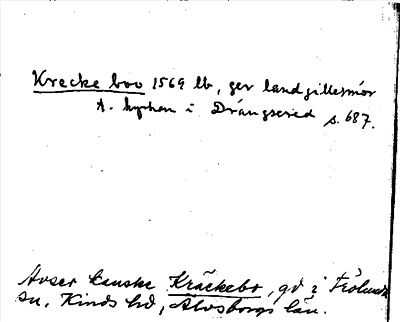 Krecke boo 1569 lb, ger landgillesmör
t. kyrkan i Drängsered s. 687.
Avser kanske Kräckebo, gd i Frölunda
sn, Kinds hd, Älvsborgs län.